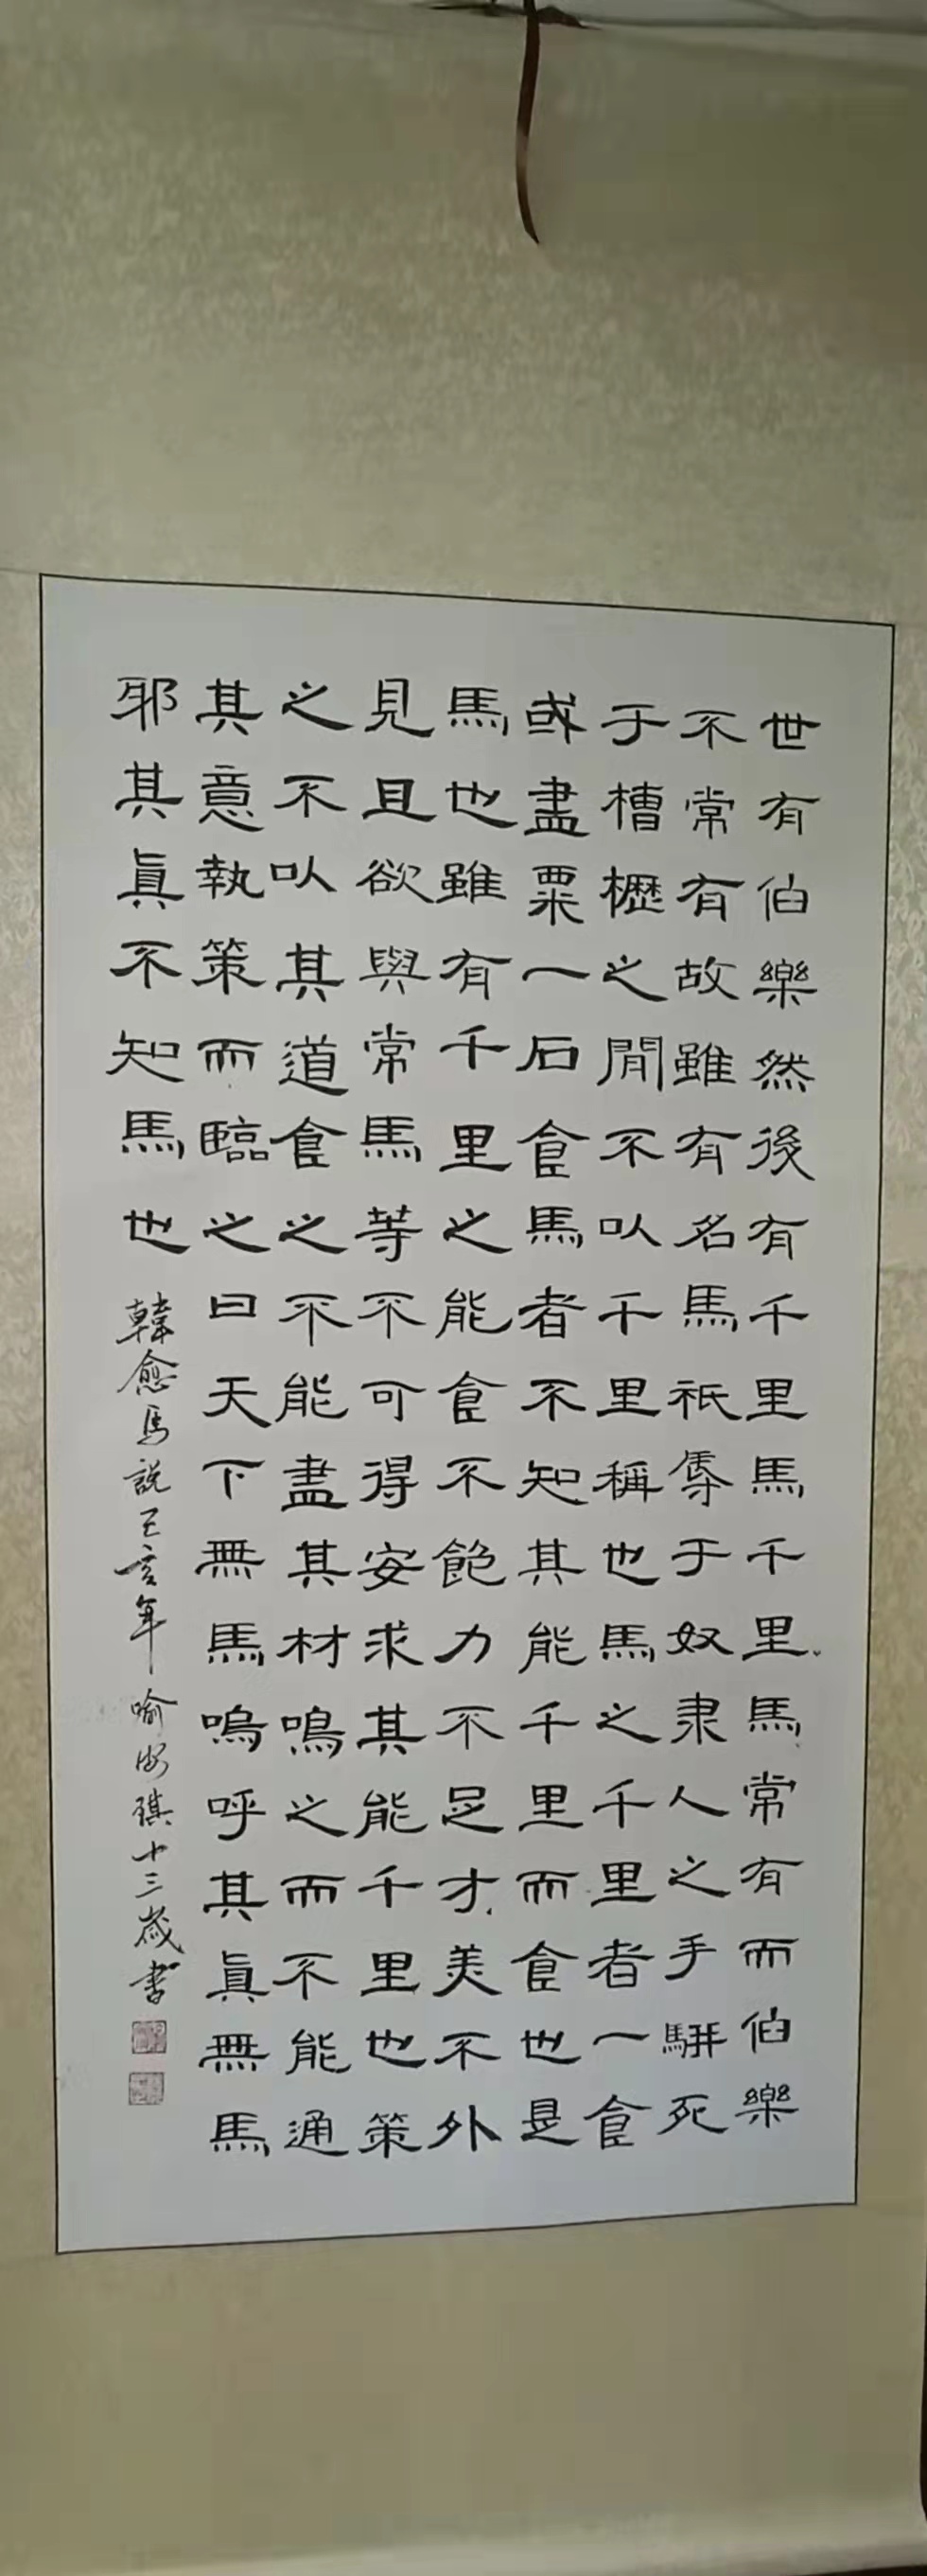 世有伯樂然後有千里馬千里馬常有而伯樂
不常有故雖有名馬祇辱于奴隶人之手駢死
于槽櫪之間不以千里稱也馬之千里者一食
或盡粟一石食馬者不知其能千里而食也是
馬也雖有千里之能食不飽力不足才美不外
見且欲與常馬等不可得安求其能千里也策
之不以其道食之不能盡其材鳴之而不能通
其意執策而臨之曰天下無馬嗚呼其真無馬
邪其真不知馬也
韓愈馬説己亥年喻琪十三歲書